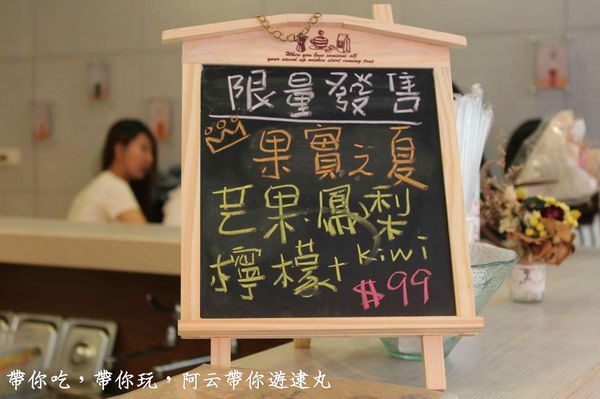 When you love someone all
your saved up wishes start coming true
限量發售
果實之夏
芒果.鳳梨
檸檬+kiwi
$99
帶你吃，帶你玩，阿云帶你遊逮丸